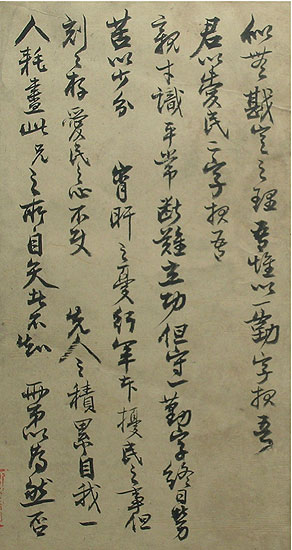 似無戡定之理吾惟以一勤字报吾
君以愛民二字报吾
親才識平常斷難立功但守一勤字終日勞
苦以少分 宵旰之憂行軍本擾民之事但
刻刻存愛民之心不使 先人之積累自我一
人耗盡此兄之所自矢者不知 兩弟以為然否